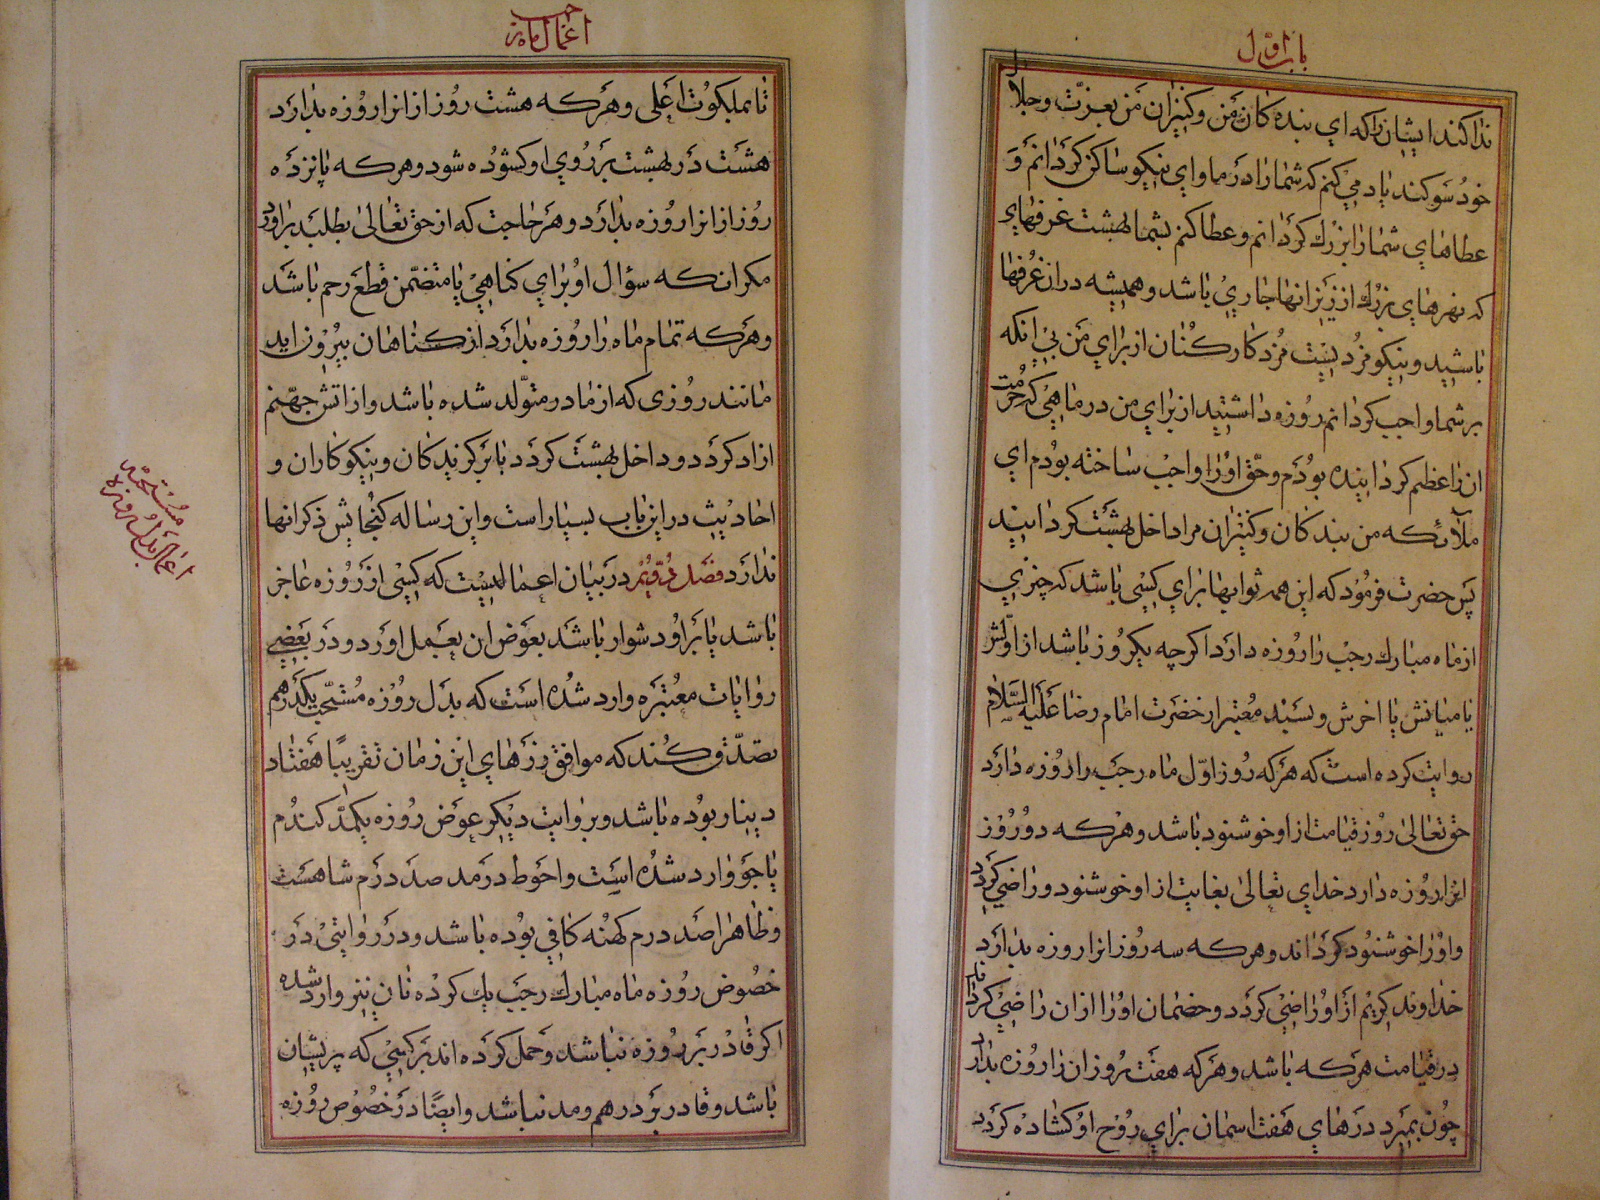 باب اول
ندا کند ایشان را که ای بنده کان من و کنیزان من بعزت و جلال
خود سوکند یاد می کنم که شما را در ماوای نیکو ساکن کردانم و
عطاهای شما را بزرك کردانم و عطا کنم بشما بهشت غرفهای
که نهرهای بزرك از زیر انها جاری باشد و همیشه در ان غرفها
باشید و نیکو مزدیست مزد کارکنان از برای من بی انکه
بر شما واجب کردانم روزه داشتید از برای من در ماهی که حرمت
ان را عظیم کردانیده بودم و حق او را واجب ساخته بودم ای
ملائکه من بندکان و کنیزان مرا داخل بهشت کردانید
پس حضرت فرمود که این همه ثوابها برای کسی باشد که چیزی
از ماه مبارك رجب را روزه دارد اکرچه یکروز باشد از اولش
یا میانش یا اخرش و بسند معتبر از حضرت امام رضا علیه السلام
روایت کرده است که هرکه روز اول ماه رجب را روزه دارد
حق تعالی روز قیامت از او خوشنود باشد و هرکه دو روز
انرا روزه دارد خدای تعالی بغایت از او خوشنود و راضی کردد
و او را خوشنود کرداند و هرکه سه روز انرا روزه بدارد
خداوند کریم از او راضی کردد و خصمان او را از ان راضی کرداند
در قیامت هرکه باشد و هرکه هفت روز ان را روزه بدارد
چون بمیرد درهای هفت اسمان برای روح او کشاده کردد
اعمال ماه رجب
تا بملکوت اعلی و هرکه هشت روز از انرا روزه بدارد
هشت در بهشت بر روی او کشوده شود و هرکه پانزده
روز از انرا روزه بدارد و هر حاجت که از حق تعالی بطلبد براورد
مکر انکه سؤال او برای کناهی یا متضمن قطع رحم باشد
و هرکه تمام ماه را روزه بدارد از کناهان بیرون اید
مانند روزی که از مادر متولد شده باشد و از اتش جهنم
ازاد کردد و داخل بهشت کردد با برکزیدکان و نیکوکاران و
احادیث در این باب بسیار است و این رساله کنجایش ذکر انها
ندارد فصل دویم در بیان اعمالیست که کسی از روزه عاجز
باشد یا بر او دشوار باشد بعوض ان بعمل اورد و در بعضی
روایات معتبره وارد شده است که بدل روزه مستحب یکدرهم
تصدق کند که موافق زرهای این زمان تقریبًا هفتاد
دینار بوده باشد و بروایت دیکر عوض روزه یکمد کندم
یا جو وارد شده است و احوط در مد صد درم شاهست
و ظاهرا صد درم کهنه کافی بوده باشد و در روایتی در
خصوص روزه ماه مبارك رجب یك کرده نان نیز وارد شده
اکر قادر بر روزه نباشد و حمل کرده اند بر کسی که پریشان
باشد و قادر بر درهم و مد نباشد و ایضًا در خصوص روزه